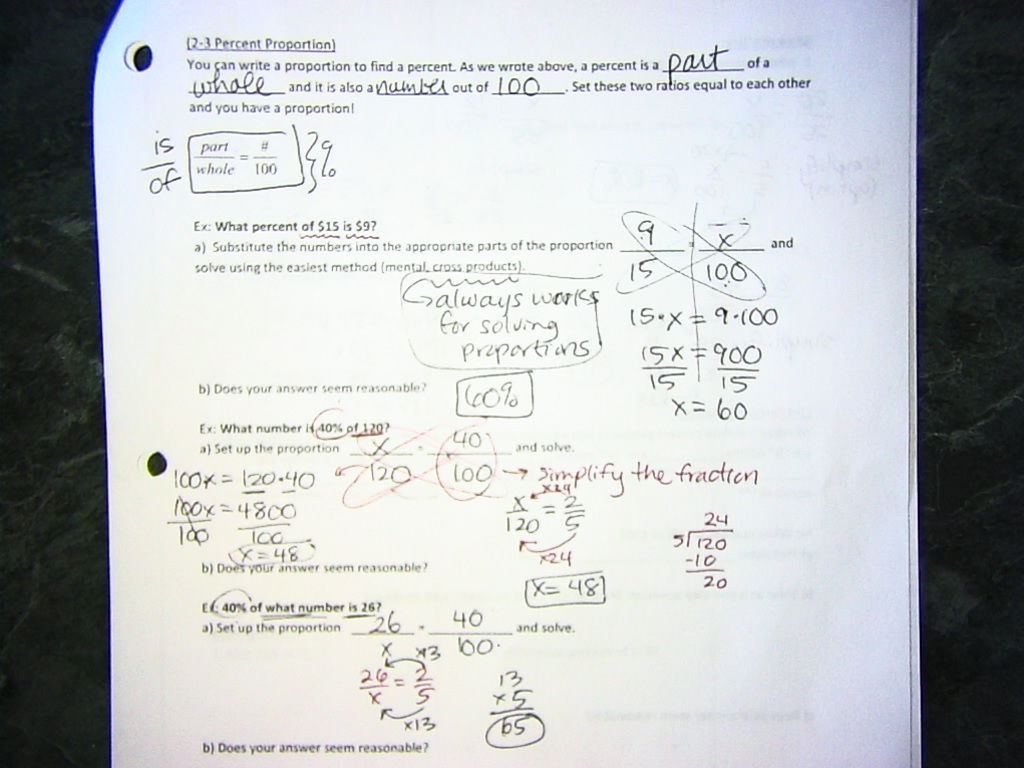 (2-3 Percent Proportion)
You can write a proportion to find a percent. As we wrote above, a percent is a part of a
whole and it is also a number out of 100. Set these two ratios equal to each other
and you have a proportion!
is/of part/whole = #/100 } %
Ex: What percent of $15 is $9?
a) Substitute the numbers into the appropriate parts of the proportion 9/15 = x/100 and
solve using the easiest method (mental, cross products).
always works
for solving
proportions
15·x = 9·100
15x/15 = 900/15
x = 60
b) Does your answer seem reasonable? 60%
Ex: What number is 40% of 120?
a) Set up the proportion x/120 = 40/100 and solve.
→ simplify the fraction
100x = 120·40
100x/100 = 4800/100
x = 48
x24
x/120 = 2/5
x24
24
5)120
-10
20
b) Does your answer seem reasonable?
x = 48
Ex: 40% of what number is 26?
a) Set up the proportion 26/x = 40/100 and solve.
x13
26/x = 2/5
x13
13
x5
65
b) Does your answer seem reasonable?